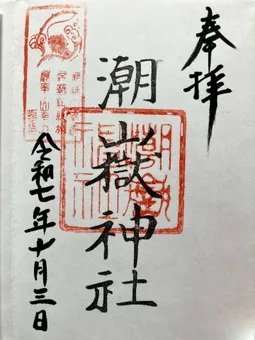 奉拝
潮嶽神社
令和七年十月三日